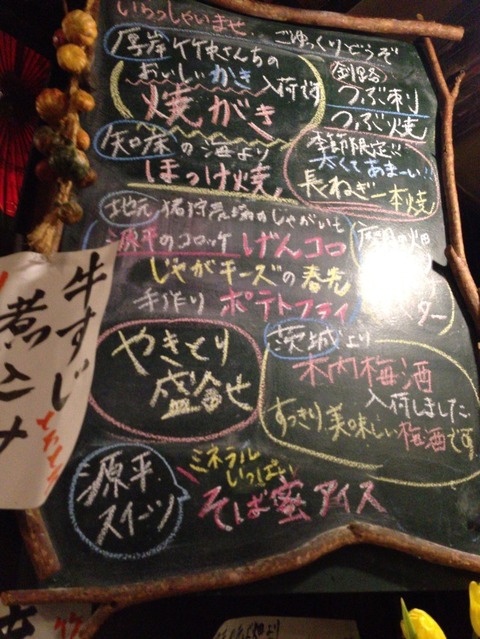 いらっしゃいませ ごゆっくりどうぞ
厚岸 竹史さんちの
おいしいかき 入荷です
焼がき
釧路
つぶ刺し
つぶ焼
知床の海より
ほっけ焼
季節限定!!
太くてあまーい!!
長ねぎ一本焼
地元 猪狩農場のじゃがいも
源平のコロッケ げんコロ
じゃがチーズの春先
手作り ポテトフライ
ター
やきとり
盛合せ
茨城より
木内梅酒
入荷しました
すっきり美味しい梅酒です
源平
スイーツ
ミネラル
いっぱい
そば蜜アイス
牛すじ
煮こみ